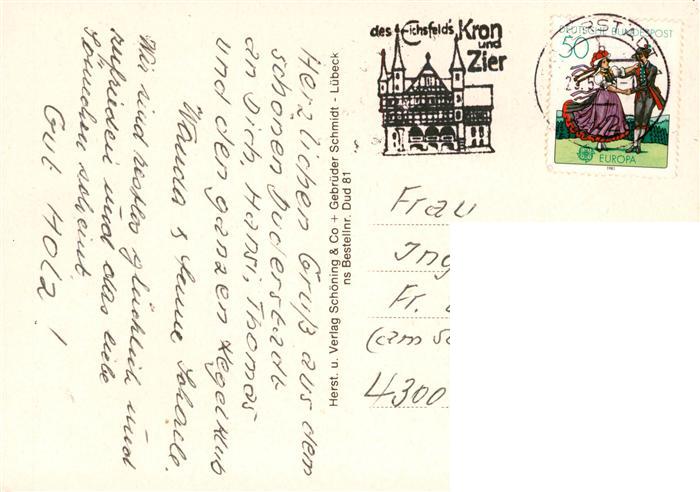 Herzlichen Gruß aus dem
schönen Duderstadt
an Dich, Hansi, Thomas
und den ganzen Kegelklub
Wanda & 
Wir sind restlos glücklich und
zufrieden und das liebe
Sönnchen scheint.
Gut Holz!
Herst. u. Verlag Schöning & Co + Gebrüder Schmidt - Lübeck
ns Bestellnr. Dud 81
des Eichsfelds Kron
und
Zier
DEUTSCHE BUNDESPOST
50
EUROPA
1981
Frau
Ing
Fr.
(am
4300